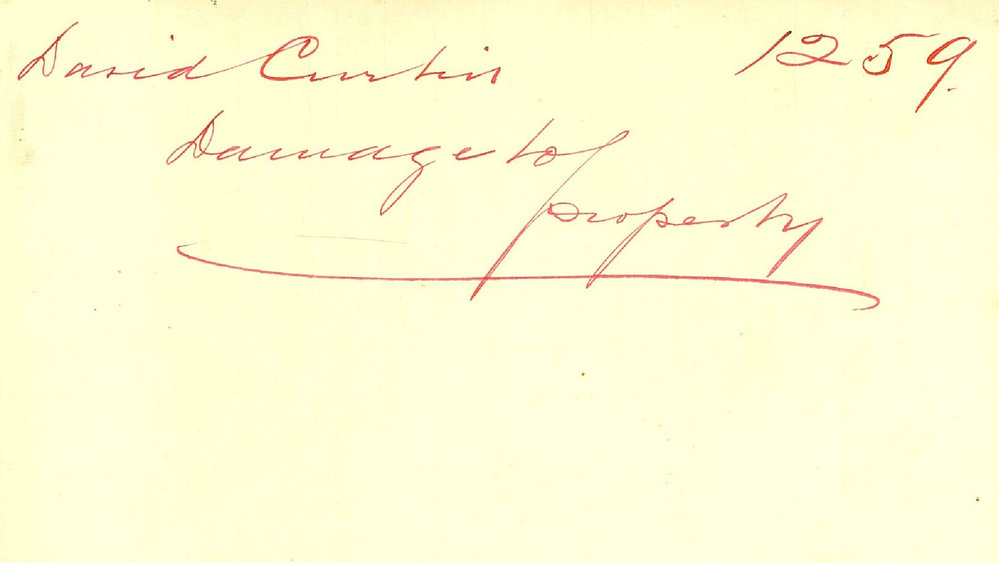 David Curtin 1259.
Damage to
property